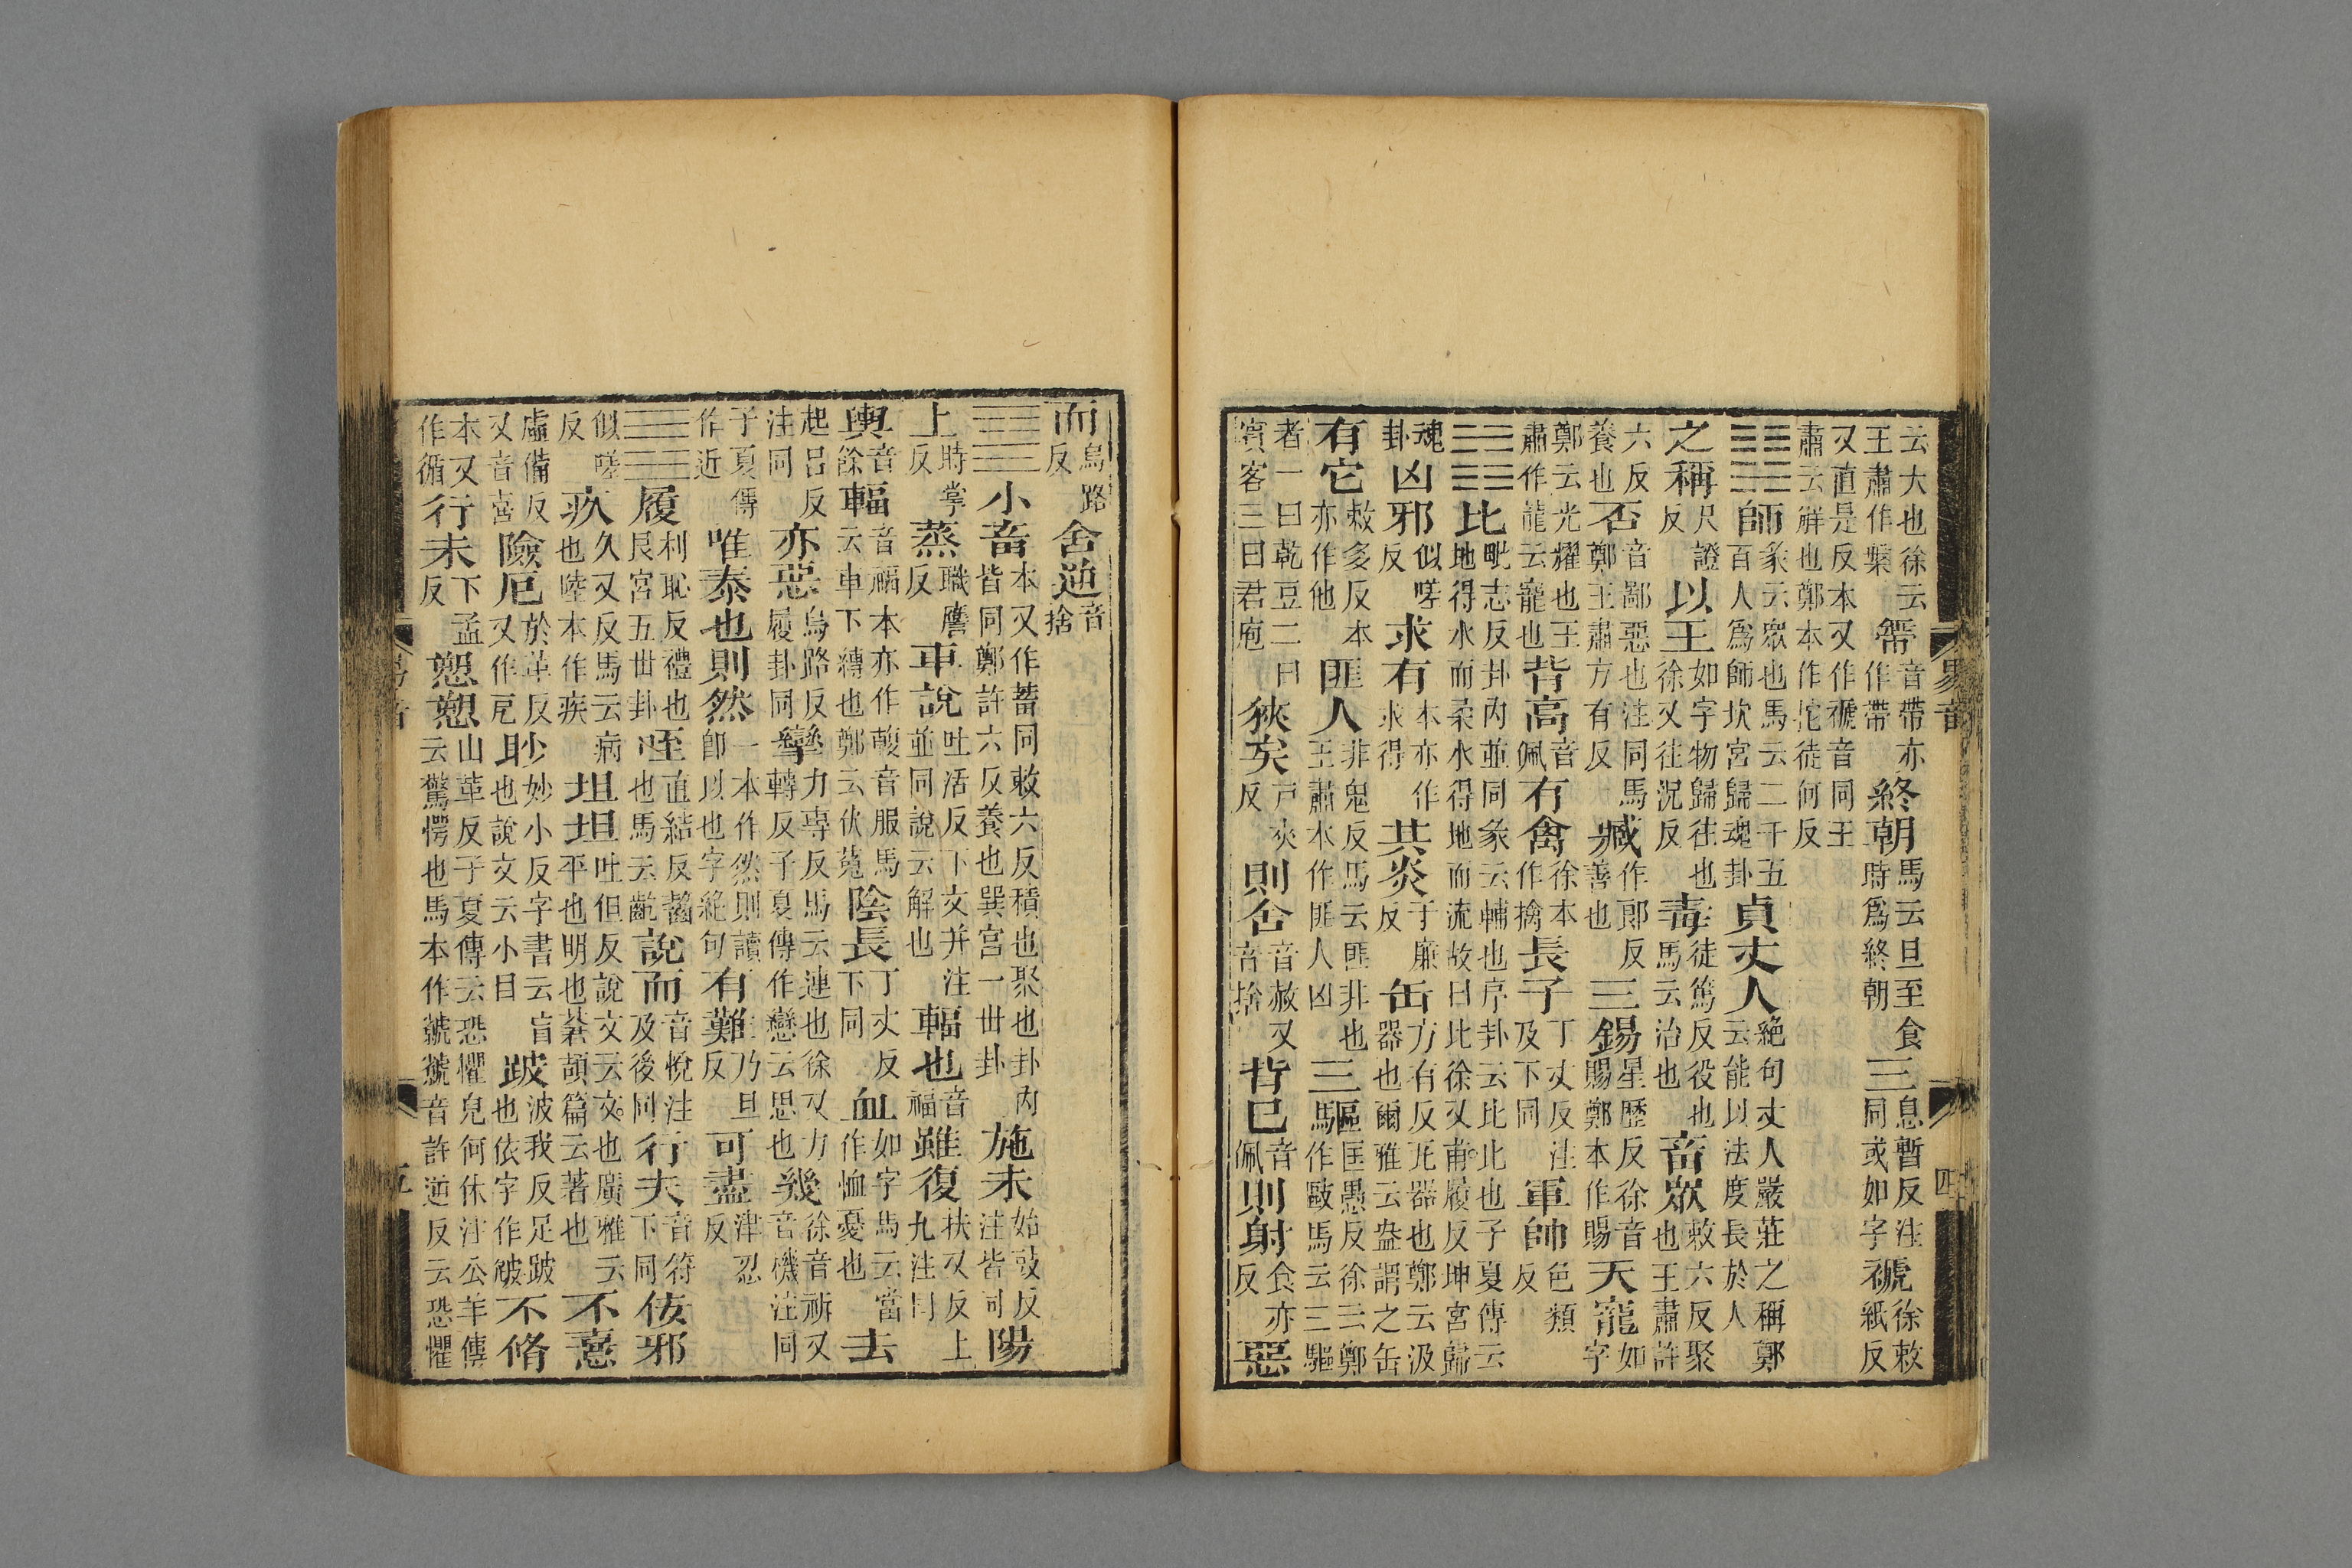 云大也徐云王肅作槃音帶亦作帶終朝馬云旦至食時爲終朝三息暫反注同或如字褫徐敕紙反
又直是反本又作褫音同王肅云解也鄭本作拕徒何反
䷆師彖云眾也馬云二千五百人爲師坎宮歸魂卦貞丈人絶句丈人嚴莊之稱鄭云能以法度長於人
之稱尺證反以王如字物歸往也徐又往況反毒徒篤反役也馬云治也畜眾敕六反聚也王肅許
六反養也否音鄙惡也注同馬鄭王肅方有反臧作郎反善也三錫星歷反徐音賜鄭本作賜天寵如字
鄭云光耀也王肅作龍云寵也背高音佩有禽徐本作擒長子丁丈反注及下同軍帥色類反
䷇比毗志反卦內並同彖云輔也序卦云比比也子夏傳云地得水而柔水得地而流故曰比徐又甫履反坤宮歸
魂卦凶邪似嗟反求有本亦作求得其炎于廉反缶方有反瓦器也鄭云汲器也爾雅云盎謂之缶
有它敕多反本亦作他匪人非鬼反馬云匪非也王肅本作匪人凶三驅匡愚反徐云鄭作敺馬云三驅
者一曰乾豆二曰賓客三曰君庖狹矣戶夾反則舍音赦又音捨背己音佩則射食亦反惡
易音
四
而烏路反舍逆音捨
䷈小畜本又作蓄同敕六反積也聚也卦內皆同鄭許六反養也巽宮一世卦施未始豉反注皆同陽
上時掌反蒸職膺反車說吐活反下文并注並同說云解也輻也音福雖復扶又反九注同上
輿音餘輻音福本亦作輹音服馬云車下縛也鄭云伏菟陰長丁丈反下同血如字馬云當作恤憂也去
起呂反注同亦惡烏路反履卦同攣力專反馬云連也徐又力轉反子夏傳作戀云思也幾徐音祈又音機注同
子夏傳作近唯泰也則然一本作然則讀即以也字絶句有難乃旦反可盡津忍反
䷉履利恥反禮也艮宮五世卦咥直結反齧也馬云齕說而音悅注及後同行夫音符下同佞邪
似嗟反疚久又反馬云病也陸本作疾坦坦吐但反說文云安也廣雅云平也明也蒼頡篇云著也不憙
虛備反又音喜險厄於革反又作戹眇妙小反字書云盲也說文云小目跛波我反足跛也依字作𡯁不脩
本又作循行未下孟反愬愬山革反子夏傳云恐懼皃何休注公羊傳云驚愕也馬本作虩虩音許逆反云恐懼
易音
五